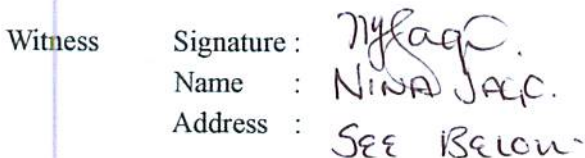 Witness Signature :
Name : NINA
Address : SEE BELOW